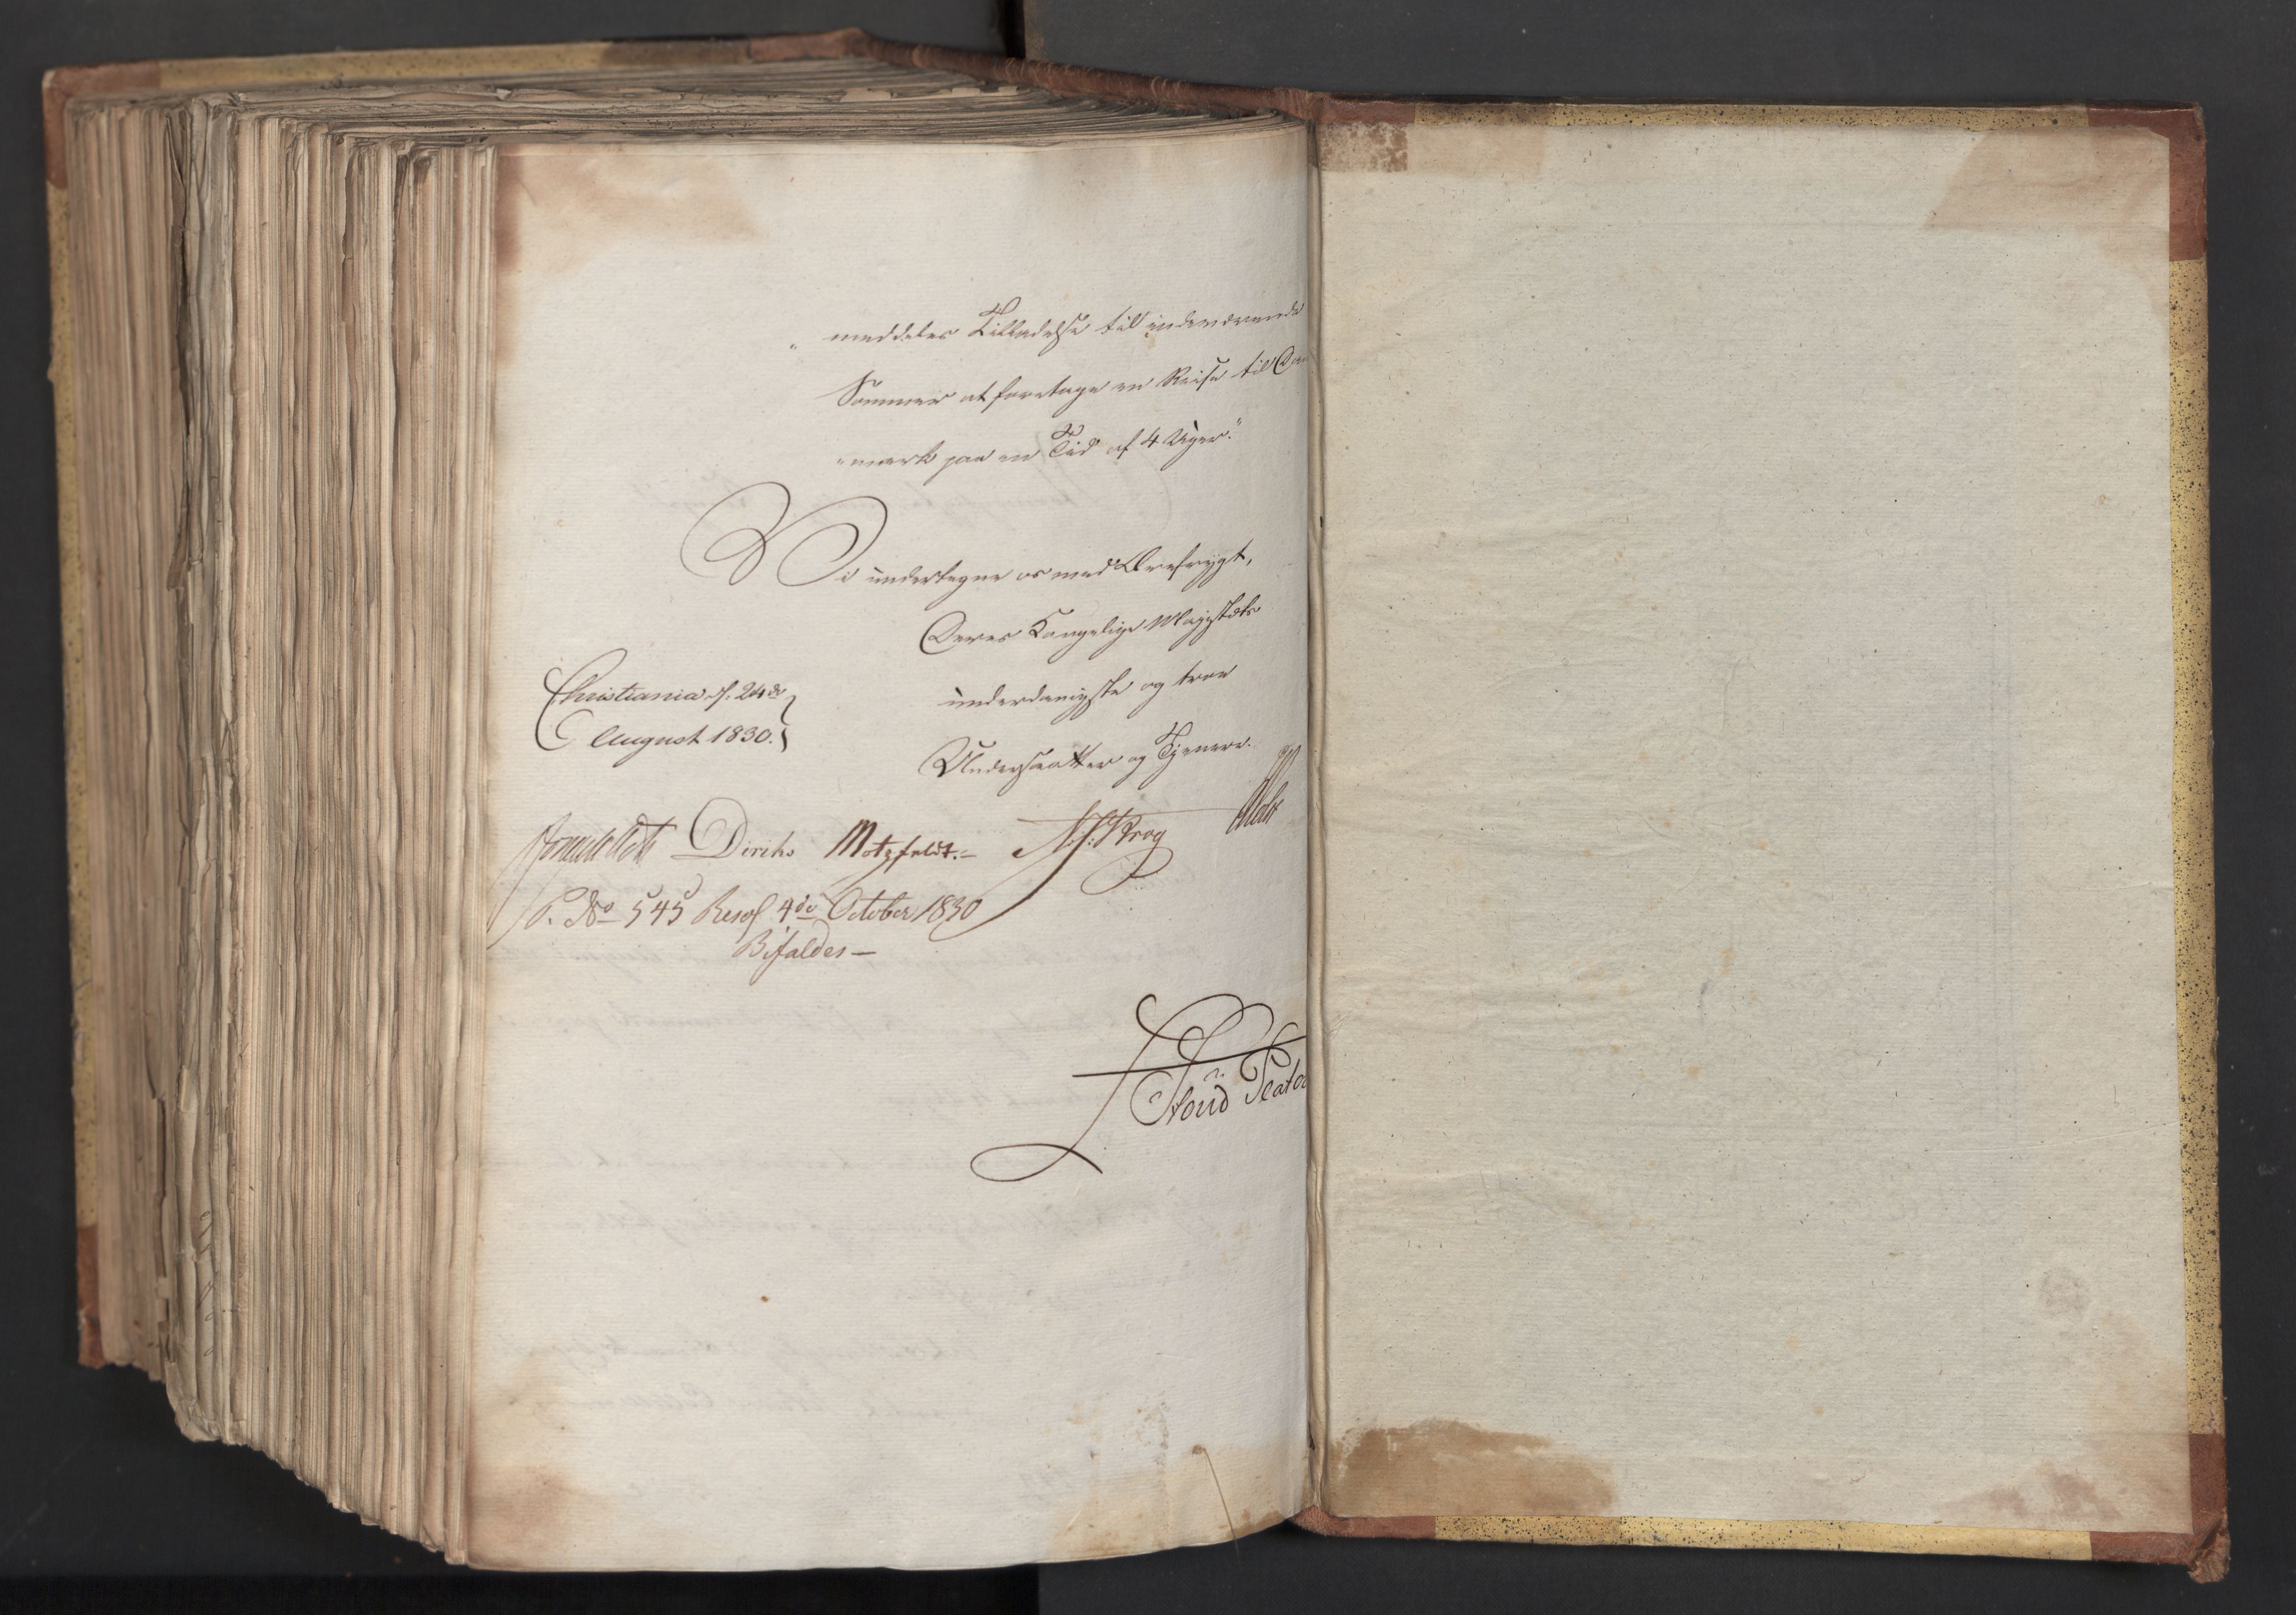 " meddeles Tilladelse til indeværende
Sommer at foretage en Reise til Dan
"mark paa en Tid af 4 Uger."
Vi undertegne os med Ærefrygt,
Deres Kongelige Majestæts
underdanigste og troe
Undersaatter og Tjenere.
Christiania d. 24de
August 1830.
Diriks Motzfeldt. N. J. Krog
P. No 545 Resol 4de October 1830
Bifaldes —